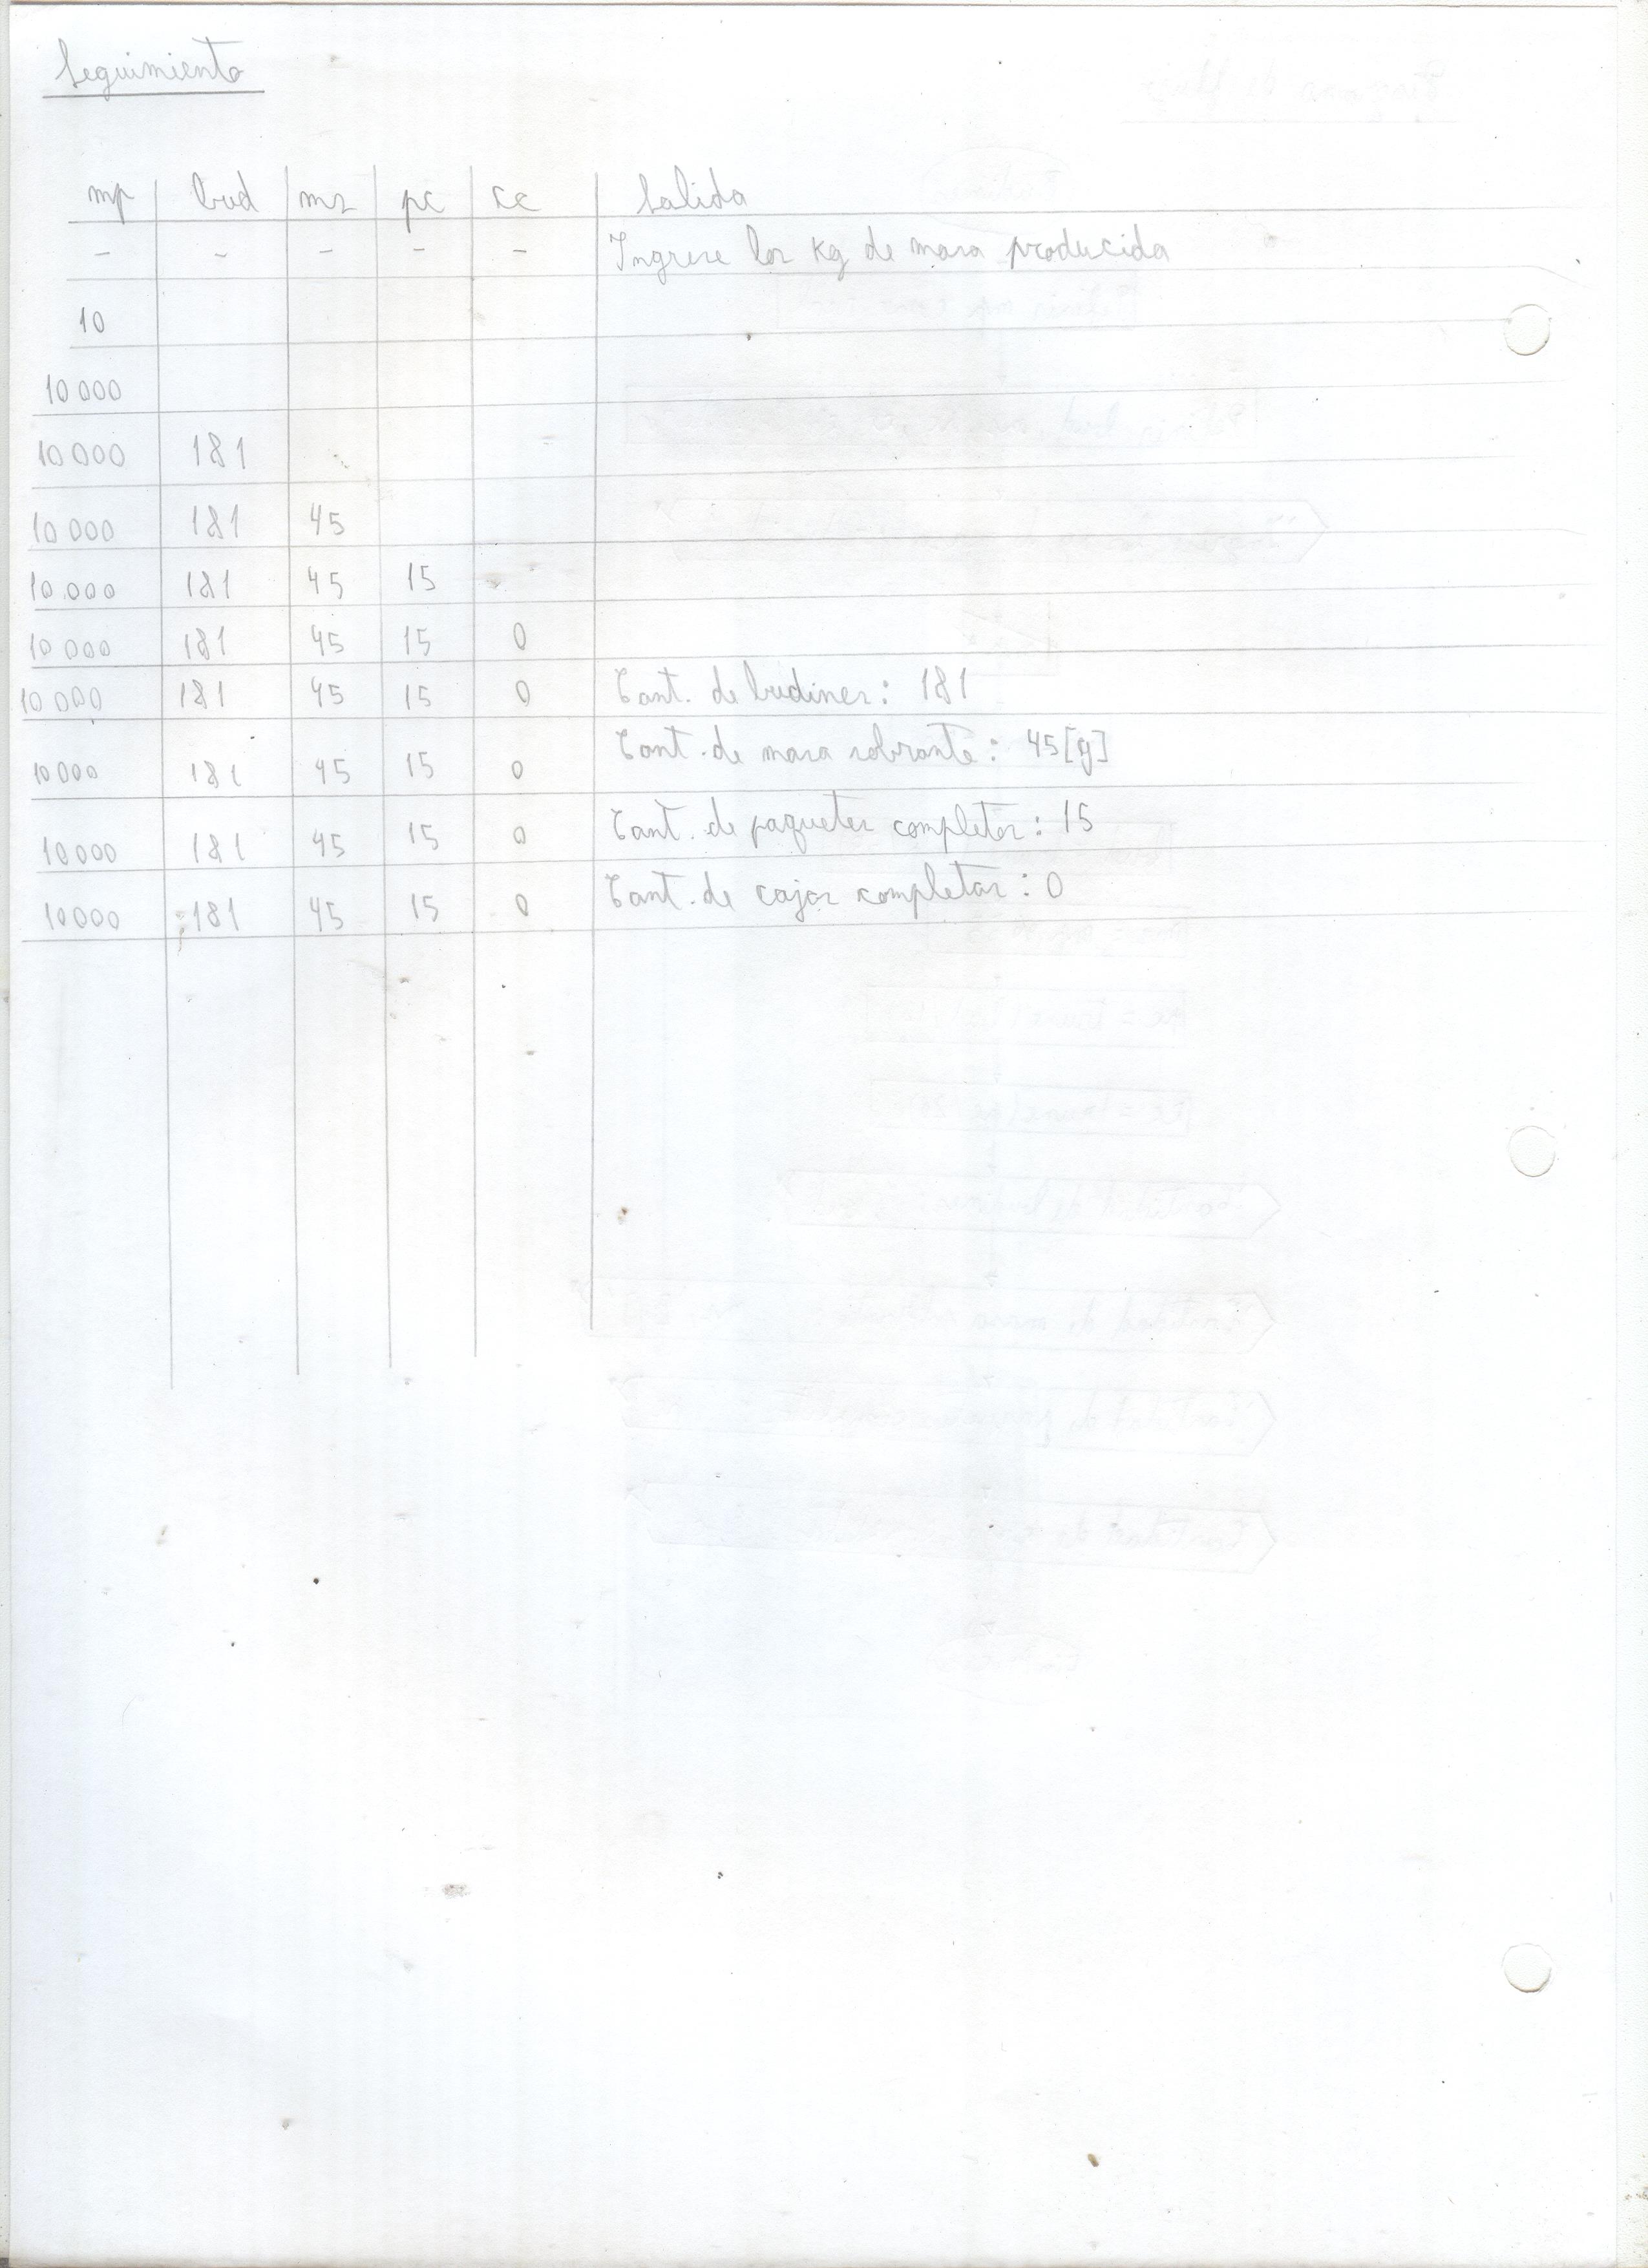 Seguimiento
mp bud ms pc cc Salida
- - - - - Ingrese los Kg de masa producida
10
10 000
10 000 181
10 000 181 45
10.000 181 45 15
10 000 181 45 15 0
10 000 181 45 15 0 Cant. de budines: 181
10 000 181 45 15 0 Cant. de masa sobrante: 45[g]
10 000 181 45 15 0 Cant. de paquetes completos: 15
10 000 181 45 15 0 Cant. de cajas completas: 0